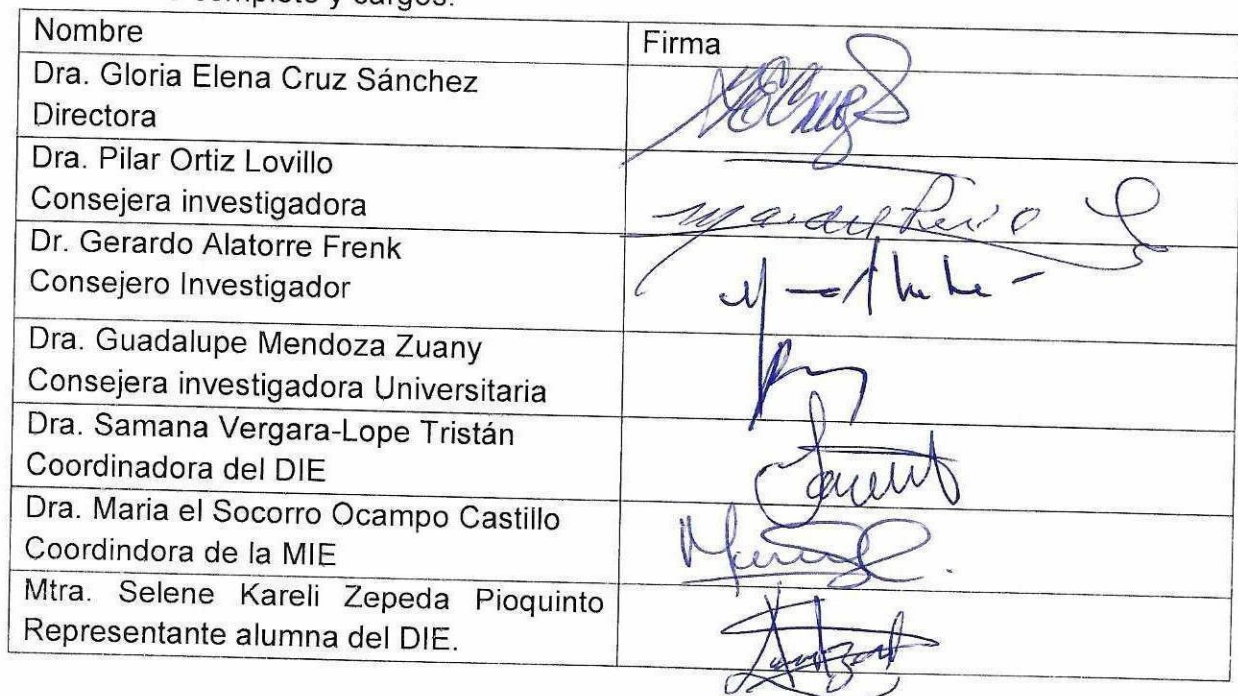 completo y cargos.
Nombre
Firma
Dra. Gloria Elena Cruz Sánchez
Directora
Dra. Pilar Ortiz Lovillo
Consejera investigadora
Dr. Gerardo Alatorre Frenk
Consejero Investigador
Dra. Guadalupe Mendoza Zuany
Consejera investigadora Universitaria
Dra. Samana Vergara-Lope Tristán
Coordinadora del DIE
Dra. Maria el Socorro Ocampo Castillo
Coordindora de la MIE
Mtra. Selene Kareli Zepeda Pioquinto
Representante alumna del DIE.